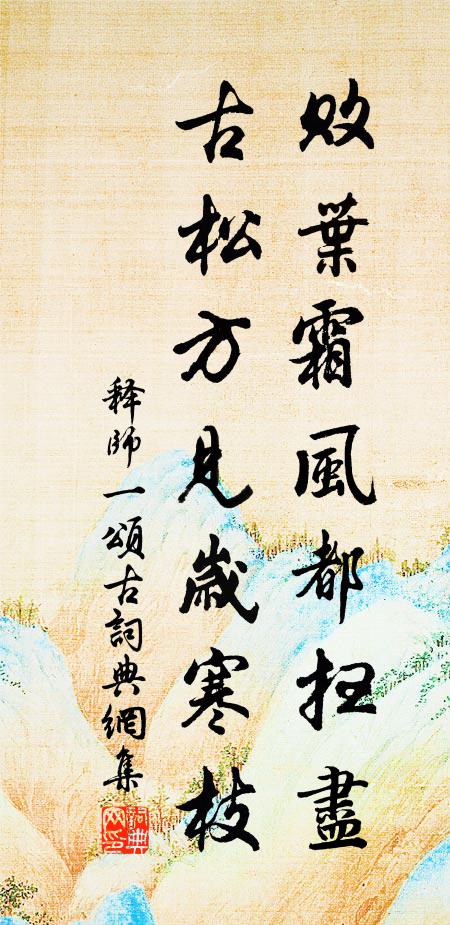 败葉霜風都扫盡
古松方見歲寒枝
释師一頌古詞典網集
詞典
网印